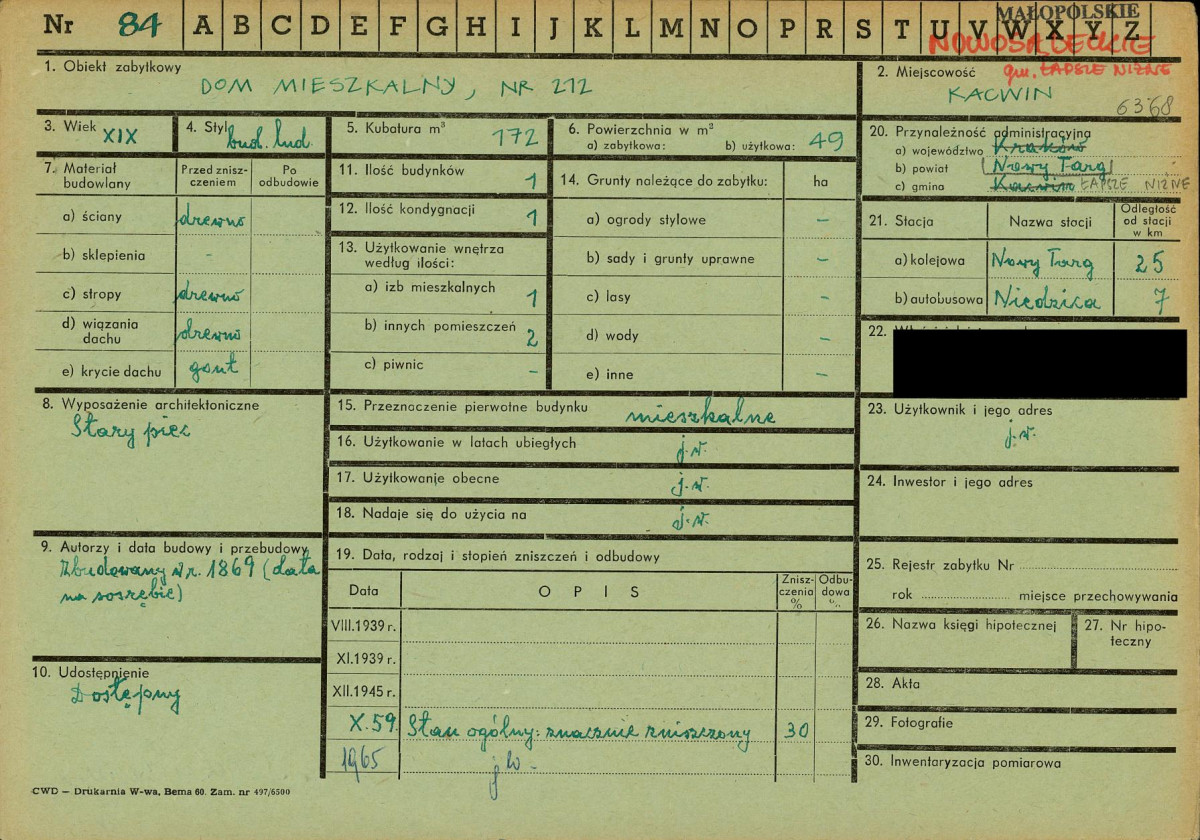 Nr 84 A B C D E F G H I J K L M N O P R S T U V W X Y Z
MAŁOPOLSKIE
NOWOSĄDECKIE
gm. ŁAPSZE NIŻNE
1. Obiekt zabytkowy
DOM MIESZKALNY, NR 212
2. Miejscowość
KACWIN
6368
3. Wiek XIX
4. Styl bud. lud.
5. Kubatura m³ 172
6. Powierzchnia w m²
a) zabytkowa: b) użytkowa: 49
7. Materiał budowlany
Przed zniszczeniem
Po odbudowie
a) ściany drewno
b) sklepienia -
c) stropy drewno
d) wiązania dachu drewno
e) krycie dachu gont
8. Wyposażenie architektoniczne
Stary piec
9. Autorzy i data budowy i przebudowy
Zbudowany w r. 1869 (data
na sosrębie)
10. Udostępnienie
Dostępny
11. Ilość budynków 1
12. Ilość kondygnacji 1
13. Użytkowanie wnętrza
według ilości:
a) izb mieszkalnych 1
b) innych pomieszczeń 2
c) piwnic -
14. Grunty należące do zabytku: ha
a) ogrody stylowe -
b) sady i grunty uprawne -
c) lasy -
d) wody -
e) inne -
15. Przeznaczenie pierwotne budynku mieszkalne
16. Użytkowanie w latach ubiegłych j.w.
17. Użytkowanie obecne j.w.
18. Nadaje się do użycia na j.w.
19. Data, rodzaj i stopień zniszczeń i odbudowy
Data O P I S Zniszczenia % Odbudowa %
VIII.1939 r.
XI.1939 r.
XII.1945 r.
X.59. Stan ogólny: znacznie zniszczony 30
1965 j w -
20. Przynależność administracyjna
a) województwo Kraków
b) powiat Nowy Targ
c) gmina Kacwin ŁAPSZE NIŻNE
21. Stacja Nazwa stacji Odległość od stacji w km
a) kolejowa Nowy Targ 25
b) autobusowa Niedzica 7
22.
23. Użytkownik i jego adres
j.w.
24. Inwestor i jego adres
25. Rejestr zabytku Nr
rok miejsce przechowywania
26. Nazwa księgi hipotecznej
27. Nr hipoteczny
28. Akta
29. Fotografie
30. Inwentaryzacja pomiarowa
CWD – Drukarnia W-wa, Bema 60. Zam. nr 497/6500